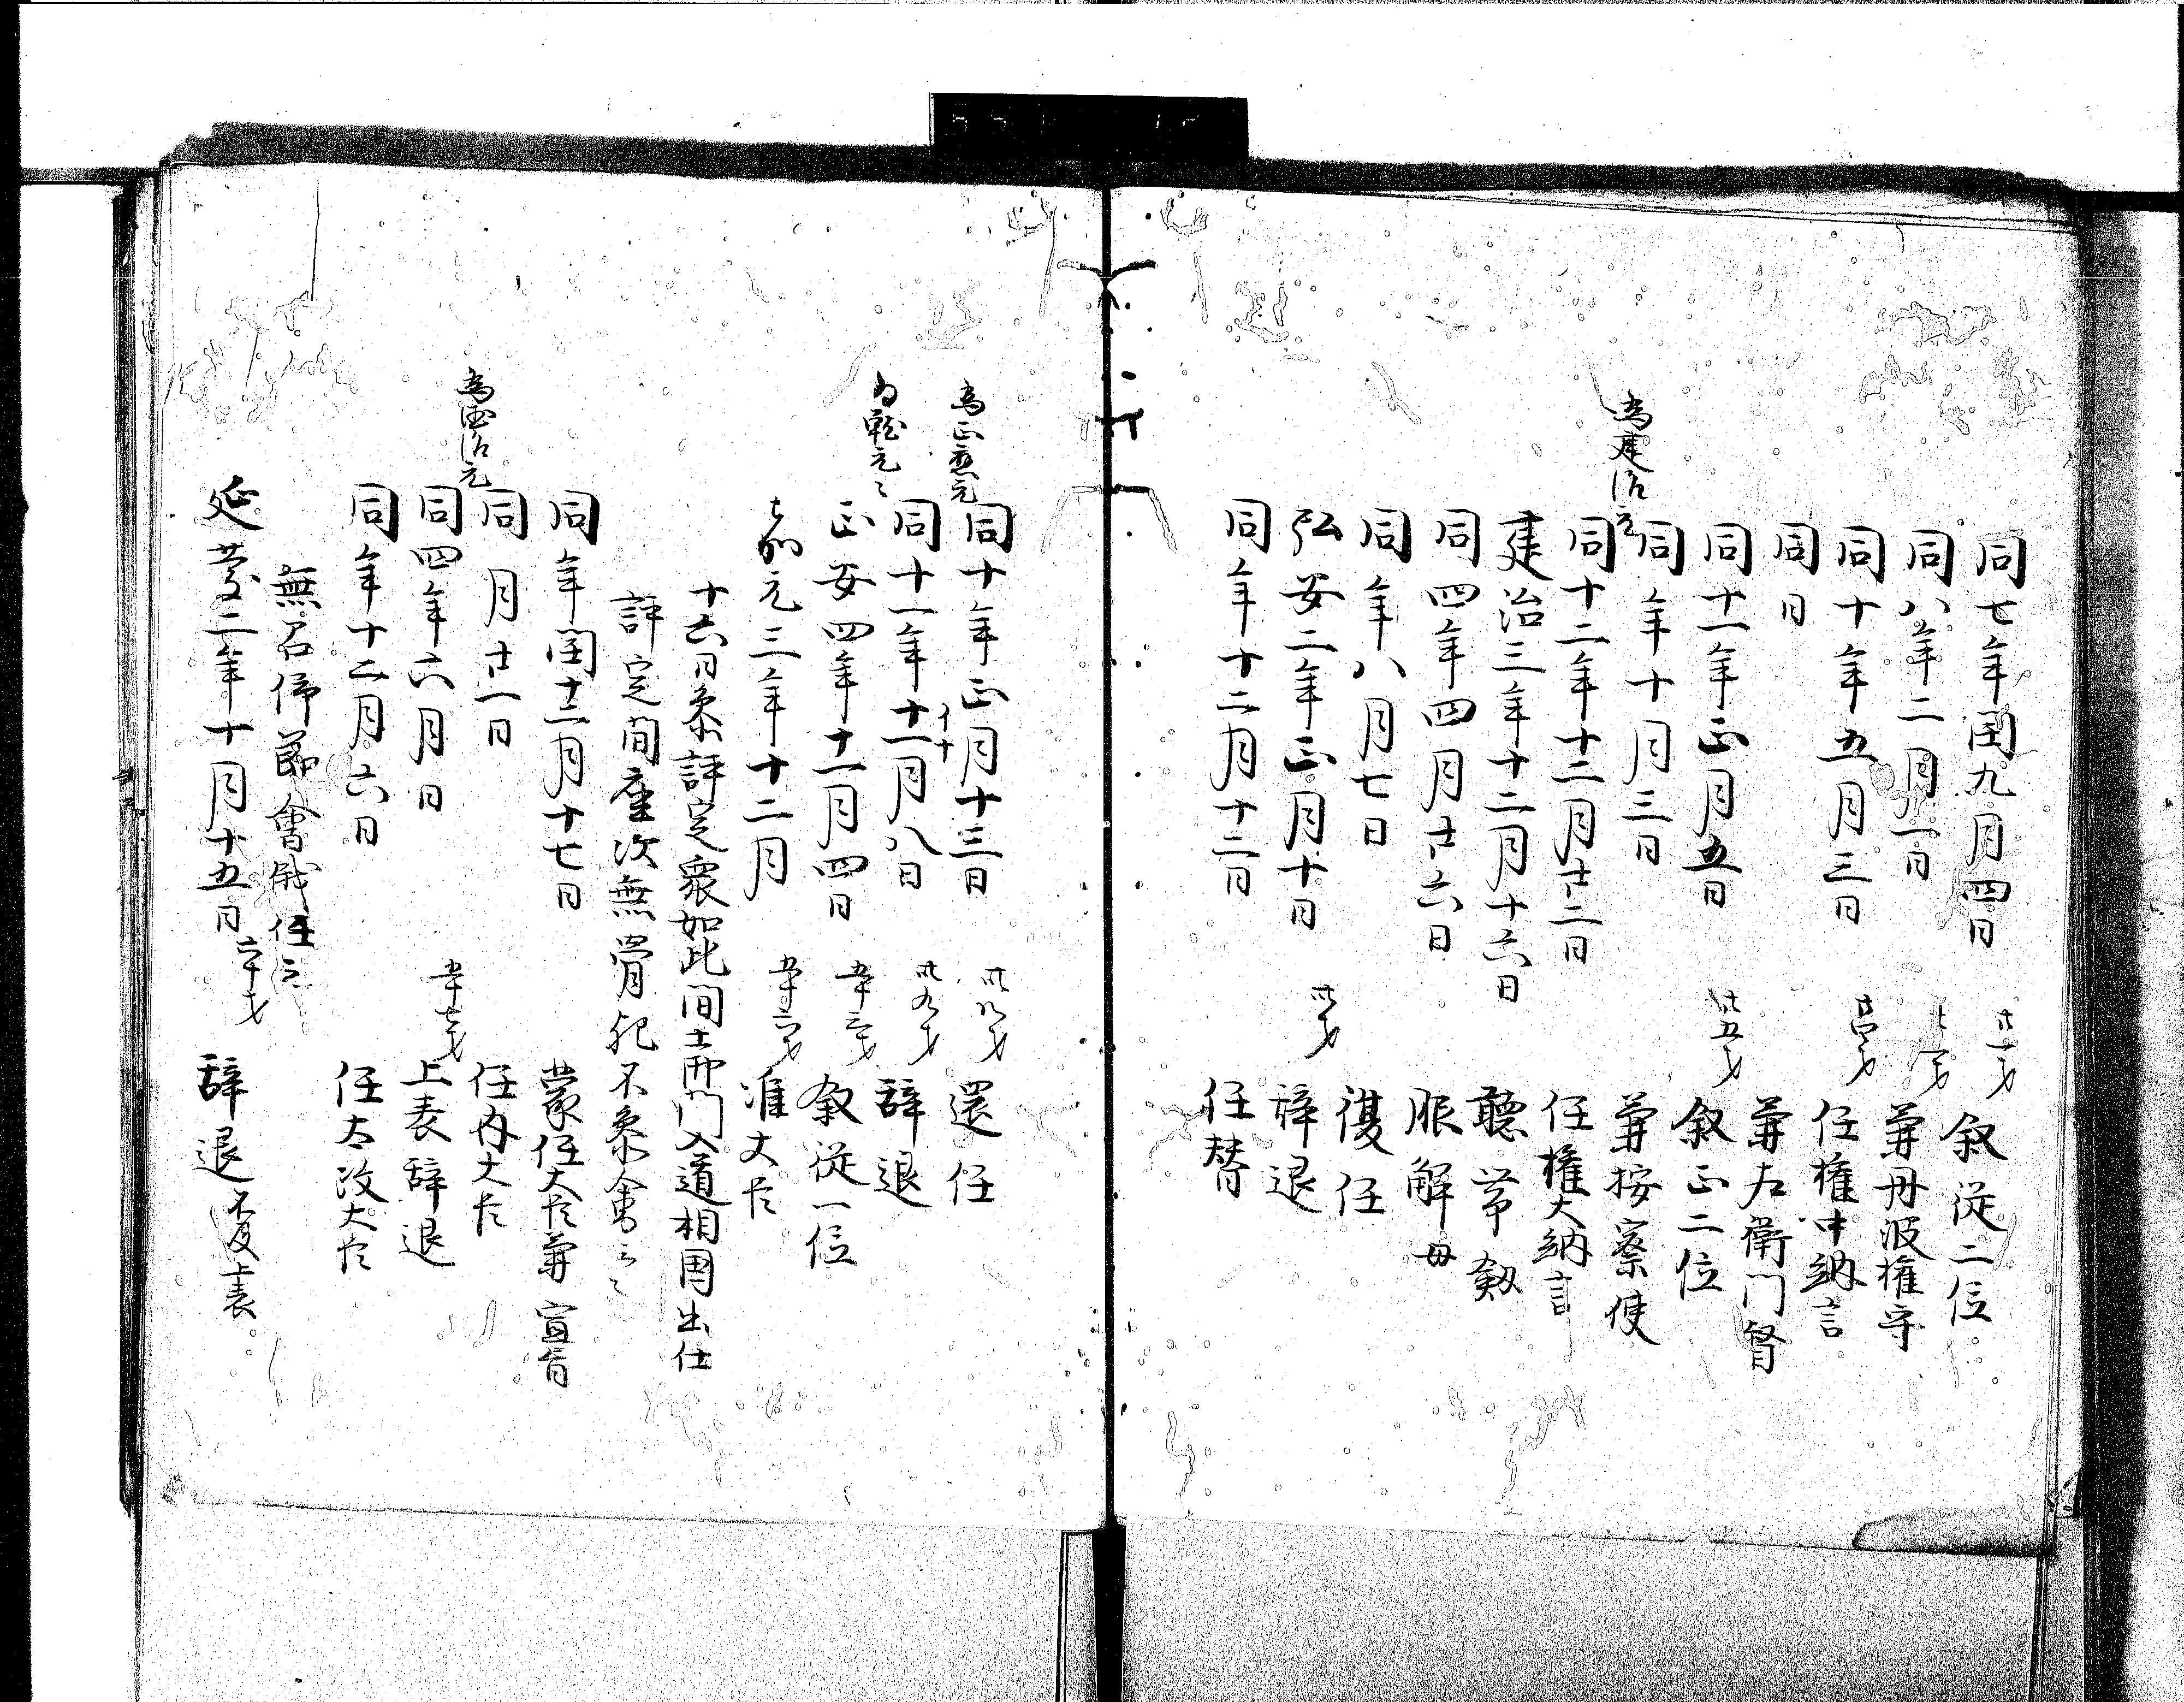 同七年閏九月四日 廿一才 叙従二位
同八年二月一日 兼丹波権守
同十年五月三日 廿四才 任権中納言
同日 兼左衛門督
同十一年正月五日 廿五才 叙正二位
同年十月三日 兼按察使
為建治元
同十二年十二月廿二日 任権大納言
建治三年十二月十六日 聴帯剱
同四年四月廿六日 服解母
同年八月七日 復任
弘安二年正月十日 卅才 辞退
同年十二月十二日 任替
同十年正月十三日 卅八才 還任
為正應元
同十一年十一月八日 卅九才 辞退
イ十
為乾元々
正安四年十一月四日 五十三才 叙従一位
嘉元三年十二月 五十六才 准大臣
十六日参評定衆如此間土御門入道相国出仕
評定間座次無骨歟不参會云々
同年閏十二月十七日 蒙任大臣兼宣旨
同月廿一日 任内大臣
為徳治元
同四年六月日 五十七才 上表辞退
同年十二月六日 任太政大臣
無召仰節會 任云
延慶二年十月十五日 六十才 辞退 不及上表